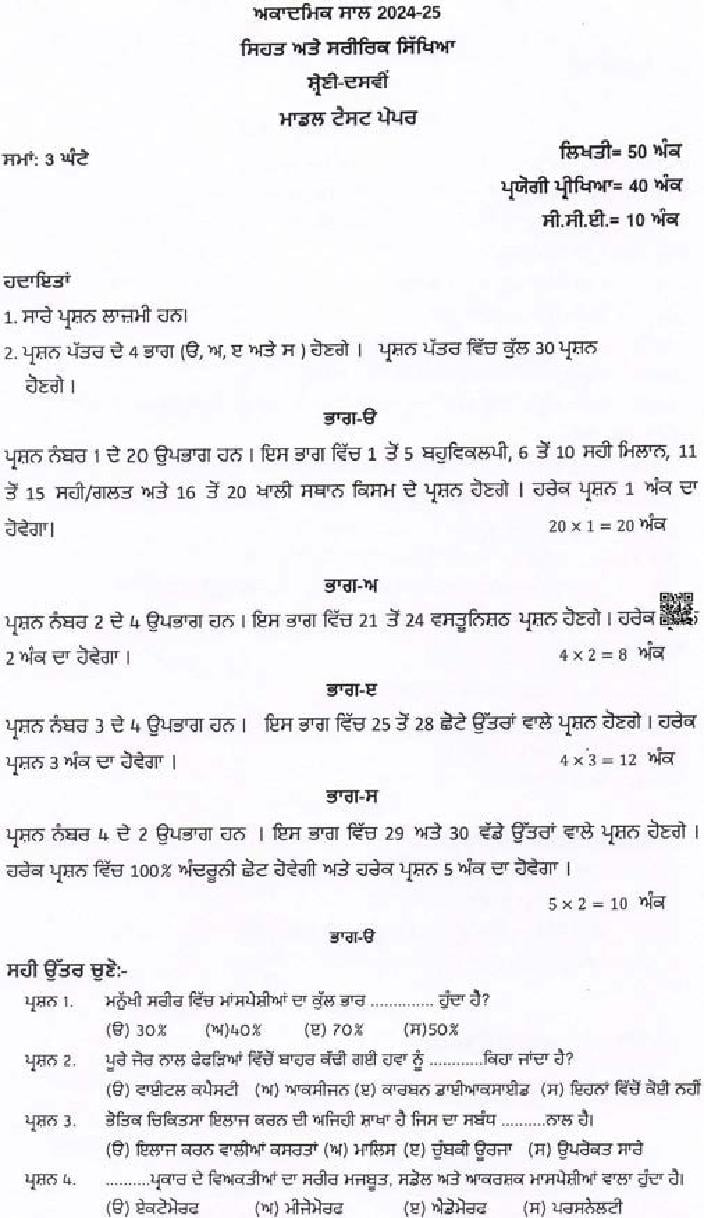 ਅਕਾਦਮਿਕ ਸਾਲ 2024-25
ਸਿਹਤ ਅਤੇ ਸਰੀਰਿਕ ਸਿੱਖਿਆ
ਸ਼੍ਰੇਣੀ-ਦਸਵੀਂ
ਮਾਡਲ ਟੈਸਟ ਪੇਪਰ
ਸਮਾਂ: 3 ਘੰਟੇ
ਲਿਖਤੀ= 50 ਅੰਕ
ਪ੍ਰਯੋਗੀ ਪ੍ਰੀਖਿਆ= 40 ਅੰਕ
ਸੀ.ਸੀ.ਈ.= 10 ਅੰਕ
ਹਦਾਇਤਾਂ
1. ਸਾਰੇ ਪ੍ਰਸ਼ਨ ਲਾਜ਼ਮੀ ਹਨ।
2. ਪ੍ਰਸ਼ਨ ਪੱਤਰ ਦੇ 4 ਭਾਗ (ੳ, ਅ, ੲ ਅਤੇ ਸ ) ਹੋਣਗੇ । ਪ੍ਰਸ਼ਨ ਪੱਤਰ ਵਿੱਚ ਕੁੱਲ 30 ਪ੍ਰਸ਼ਨ
ਹੋਣਗੇ ।
ਭਾਗ-ੳ
ਪ੍ਰਸ਼ਨ ਨੰਬਰ 1 ਦੇ 20 ਉਪਭਾਗ ਹਨ । ਇਸ ਭਾਗ ਵਿੱਚ 1 ਤੋਂ 5 ਬਹੁਵਿਕਲਪੀ, 6 ਤੋਂ 10 ਸਹੀ ਮਿਲਾਨ, 11
ਤੋਂ 15 ਸਹੀ/ਗਲਤ ਅਤੇ 16 ਤੋਂ 20 ਖਾਲੀ ਸਥਾਨ ਕਿਸਮ ਦੇ ਪ੍ਰਸ਼ਨ ਹੋਣਗੇ । ਹਰੇਕ ਪ੍ਰਸ਼ਨ 1 ਅੰਕ ਦਾ
ਹੋਵੇਗਾ। 20 × 1 = 20 ਅੰਕ
ਭਾਗ-ਅ
ਪ੍ਰਸ਼ਨ ਨੰਬਰ 2 ਦੇ 4 ਉਪਭਾਗ ਹਨ । ਇਸ ਭਾਗ ਵਿੱਚ 21 ਤੋਂ 24 ਵਸਤੂਨਿਸ਼ਠ ਪ੍ਰਸ਼ਨ ਹੋਣਗੇ । ਹਰੇਕ
2 ਅੰਕ ਦਾ ਹੋਵੇਗਾ । 4 × 2 = 8 ਅੰਕ
ਭਾਗ-ੲ
ਪ੍ਰਸ਼ਨ ਨੰਬਰ 3 ਦੇ 4 ਉਪਭਾਗ ਹਨ । ਇਸ ਭਾਗ ਵਿੱਚ 25 ਤੋਂ 28 ਛੋਟੇ ਉੱਤਰਾਂ ਵਾਲੇ ਪ੍ਰਸ਼ਨ ਹੋਣਗੇ । ਹਰੇਕ
ਪ੍ਰਸ਼ਨ 3 ਅੰਕ ਦਾ ਹੋਵੇਗਾ । 4 × 3 = 12 ਅੰਕ
ਭਾਗ-ਸ
ਪ੍ਰਸ਼ਨ ਨੰਬਰ 4 ਦੇ 2 ਉਪਭਾਗ ਹਨ । ਇਸ ਭਾਗ ਵਿੱਚ 29 ਅਤੇ 30 ਵੱਡੇ ਉੱਤਰਾਂ ਵਾਲੇ ਪ੍ਰਸ਼ਨ ਹੋਣਗੇ ।
ਹਰੇਕ ਪ੍ਰਸ਼ਨ ਵਿੱਚ 100% ਅੰਦਰੂਨੀ ਛੋਟ ਹੋਵੇਗੀ ਅਤੇ ਹਰੇਕ ਪ੍ਰਸ਼ਨ 5 ਅੰਕ ਦਾ ਹੋਵੇਗਾ ।
5 × 2 = 10 ਅੰਕ
ਭਾਗ-ੳ
ਸਹੀ ਉੱਤਰ ਚੁਣੋ:-
ਪ੍ਰਸ਼ਨ 1. ਮਨੁੱਖੀ ਸਰੀਰ ਵਿੱਚ ਮਾਂਸਪੇਸ਼ੀਆਂ ਦਾ ਕੁੱਲ ਭਾਰ .............. ਹੁੰਦਾ ਹੈ?
(ੳ) 30% (ਅ)40% (ੲ) 70% (ਸ)50%
ਪ੍ਰਸ਼ਨ 2. ਪੂਰੇ ਜੋਰ ਨਾਲ ਫੇਫੜਿਆਂ ਵਿੱਚੋਂ ਬਾਹਰ ਕੱਢੀ ਗਈ ਹਵਾ ਨੂੰ ............ਕਿਹਾ ਜਾਂਦਾ ਹੈ?
(ੳ) ਵਾਈਟਲ ਕਪੈਸਟੀ (ਅ) ਆਕਸੀਜਨ (ੲ) ਕਾਰਬਨ ਡਾਈਆਕਸਾਈਡ (ਸ) ਇਹਨਾਂ ਵਿੱਚੋਂ ਕੋਈ ਨਹੀਂ
ਪ੍ਰਸ਼ਨ 3. ਭੌਤਿਕ ਚਿਕਿਤਸਾ ਇਲਾਜ ਕਰਨ ਦੀ ਅਜਿਹੀ ਸ਼ਾਖਾ ਹੈ ਜਿਸ ਦਾ ਸਬੰਧ ..........ਨਾਲ ਹੈ।
(ੳ) ਇਲਾਜ ਕਰਨ ਵਾਲੀਆਂ ਕਸਰਤਾਂ (ਅ) ਮਾਲਿਸ (ੲ) ਚੁੰਬਕੀ ਊਰਜਾ (ਸ) ਉਪਰੋਕਤ ਸਾਰੇ
ਪ੍ਰਸ਼ਨ 4. ..........ਪ੍ਰਕਾਰ ਦੇ ਵਿਅਕਤੀਆਂ ਦਾ ਸਰੀਰ ਮਜਬੂਤ, ਸਡੋਲ ਅਤੇ ਆਕਰਸ਼ਕ ਮਾਸਪੇਸ਼ੀਆਂ ਵਾਲਾ ਹੁੰਦਾ ਹੈ।
(ੳ) ਏਕਟੋਮੋਰਫ (ਅ) ਮੀਜੋਮੋਰਫ (ੲ) ਐਡੋਮੋਰਫ (ਸ) ਪਰਸਨੈਲਟੀ